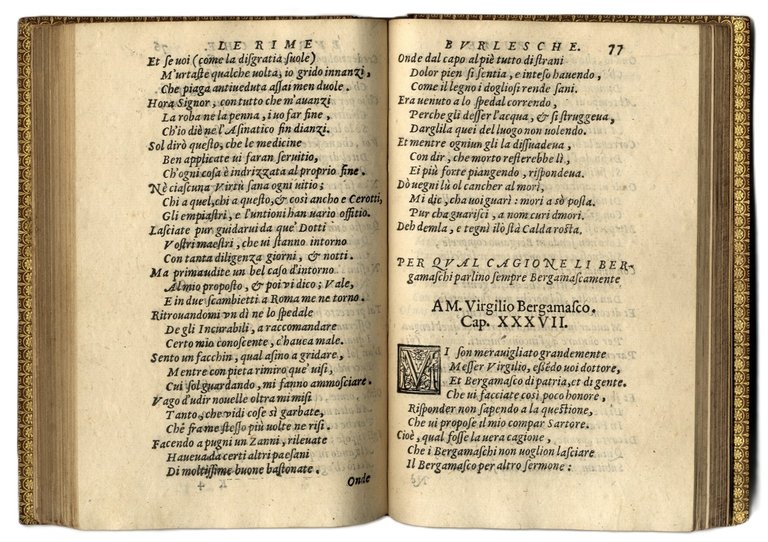 LE RIME
Et se uoi (come la disgratia suole)
M'urtaste qualche uolta, io grido innanzi,
Che piaga antiueduta assai men duole.
Hora Signor, con tutto che m'auanzi
La roba ne la penna, i uo far fine,
Ch'io diè ne l'Asinatico fin dianzi.
Sol dirò questo, che le medicine
Ben applicate ui faran seruitio,
Ch'ogni cosa è indrizzata al proprio fine.
Nè ciascuna Virtù sana ogni uitio;
Chi a quel, chi a questo, & così ancho e Cerotti,
Gli empiastri, e l'untioni han uario offitio.
Lasciate pur guidarui da que' Dotti
Vostri maestri, che ui stanno intorno
Con tanta diligenza giorni, & notti.
Ma prima udite un bel caso d'intorno
Al mio proposto, & poi ui dico; Vale,
E in due scambietti a Roma me ne torno.
Ritrouandomi un dì ne lo spedale
De gli Incurabili, a raccomandare
Certo mio conoscente, c'hauea male.
Sento un facchin, qual asino a gridare,
Mentre con pieta rimiro que' uisi,
Cui sol guardando, mi fanno ammosciare.
Vago d'udir nouelle oltra mi misi
Tanto, che vidi cose sì garbate,
Chè fra me stesso più uolte ne risi.
Facendo a pugni un Zanni, rileuate
Haueua da certi altri paesani
Di moltissime buone bastonate.
Onde
BVRLESCHE. 77
Onde dal capo al piè tutto di strani
Dolor pien si sentia, e inteso hauendo,
Come il legno i dogliosi rende sani.
Era uenuto a lo spedal correndo,
Perche gli desser l'acqua, & si struggeua,
Dargli la quei del luogo non uolendo.
Et mentre ogniun gli la dissuadeua,
Con dir, che morto resterebbe lì,
Ei più forte piangendo, rispondeua.
Dò uegnì lù ol cancher al mori,
Mi dic, cha uoi guarì: mori a sò posta.
Pur cha guarisci, a nom curi dmori.
Deh demla, e tegnì ilò stà Calda rosta.
PER QVAL CAGIONE LI BER-
gamaschi parlino sempre Bergamascamente
A M. Virgilio Bergamasco.
Cap. XXXVII.
VI son merauigliato grandemente
Messer Virgilio, essēdo uoi dottore,
Et Bergamasco di patria, et di gente.
Che ui facciate così poco honore,
Risponder non sapendo a la questione,
Che ui propose il mio compar Sartore.
Cioè, qual fosse la uera cagione,
Che i Bergamaschi non uoglion lasciare
Il Bergamasco per altro sermone:
Nè